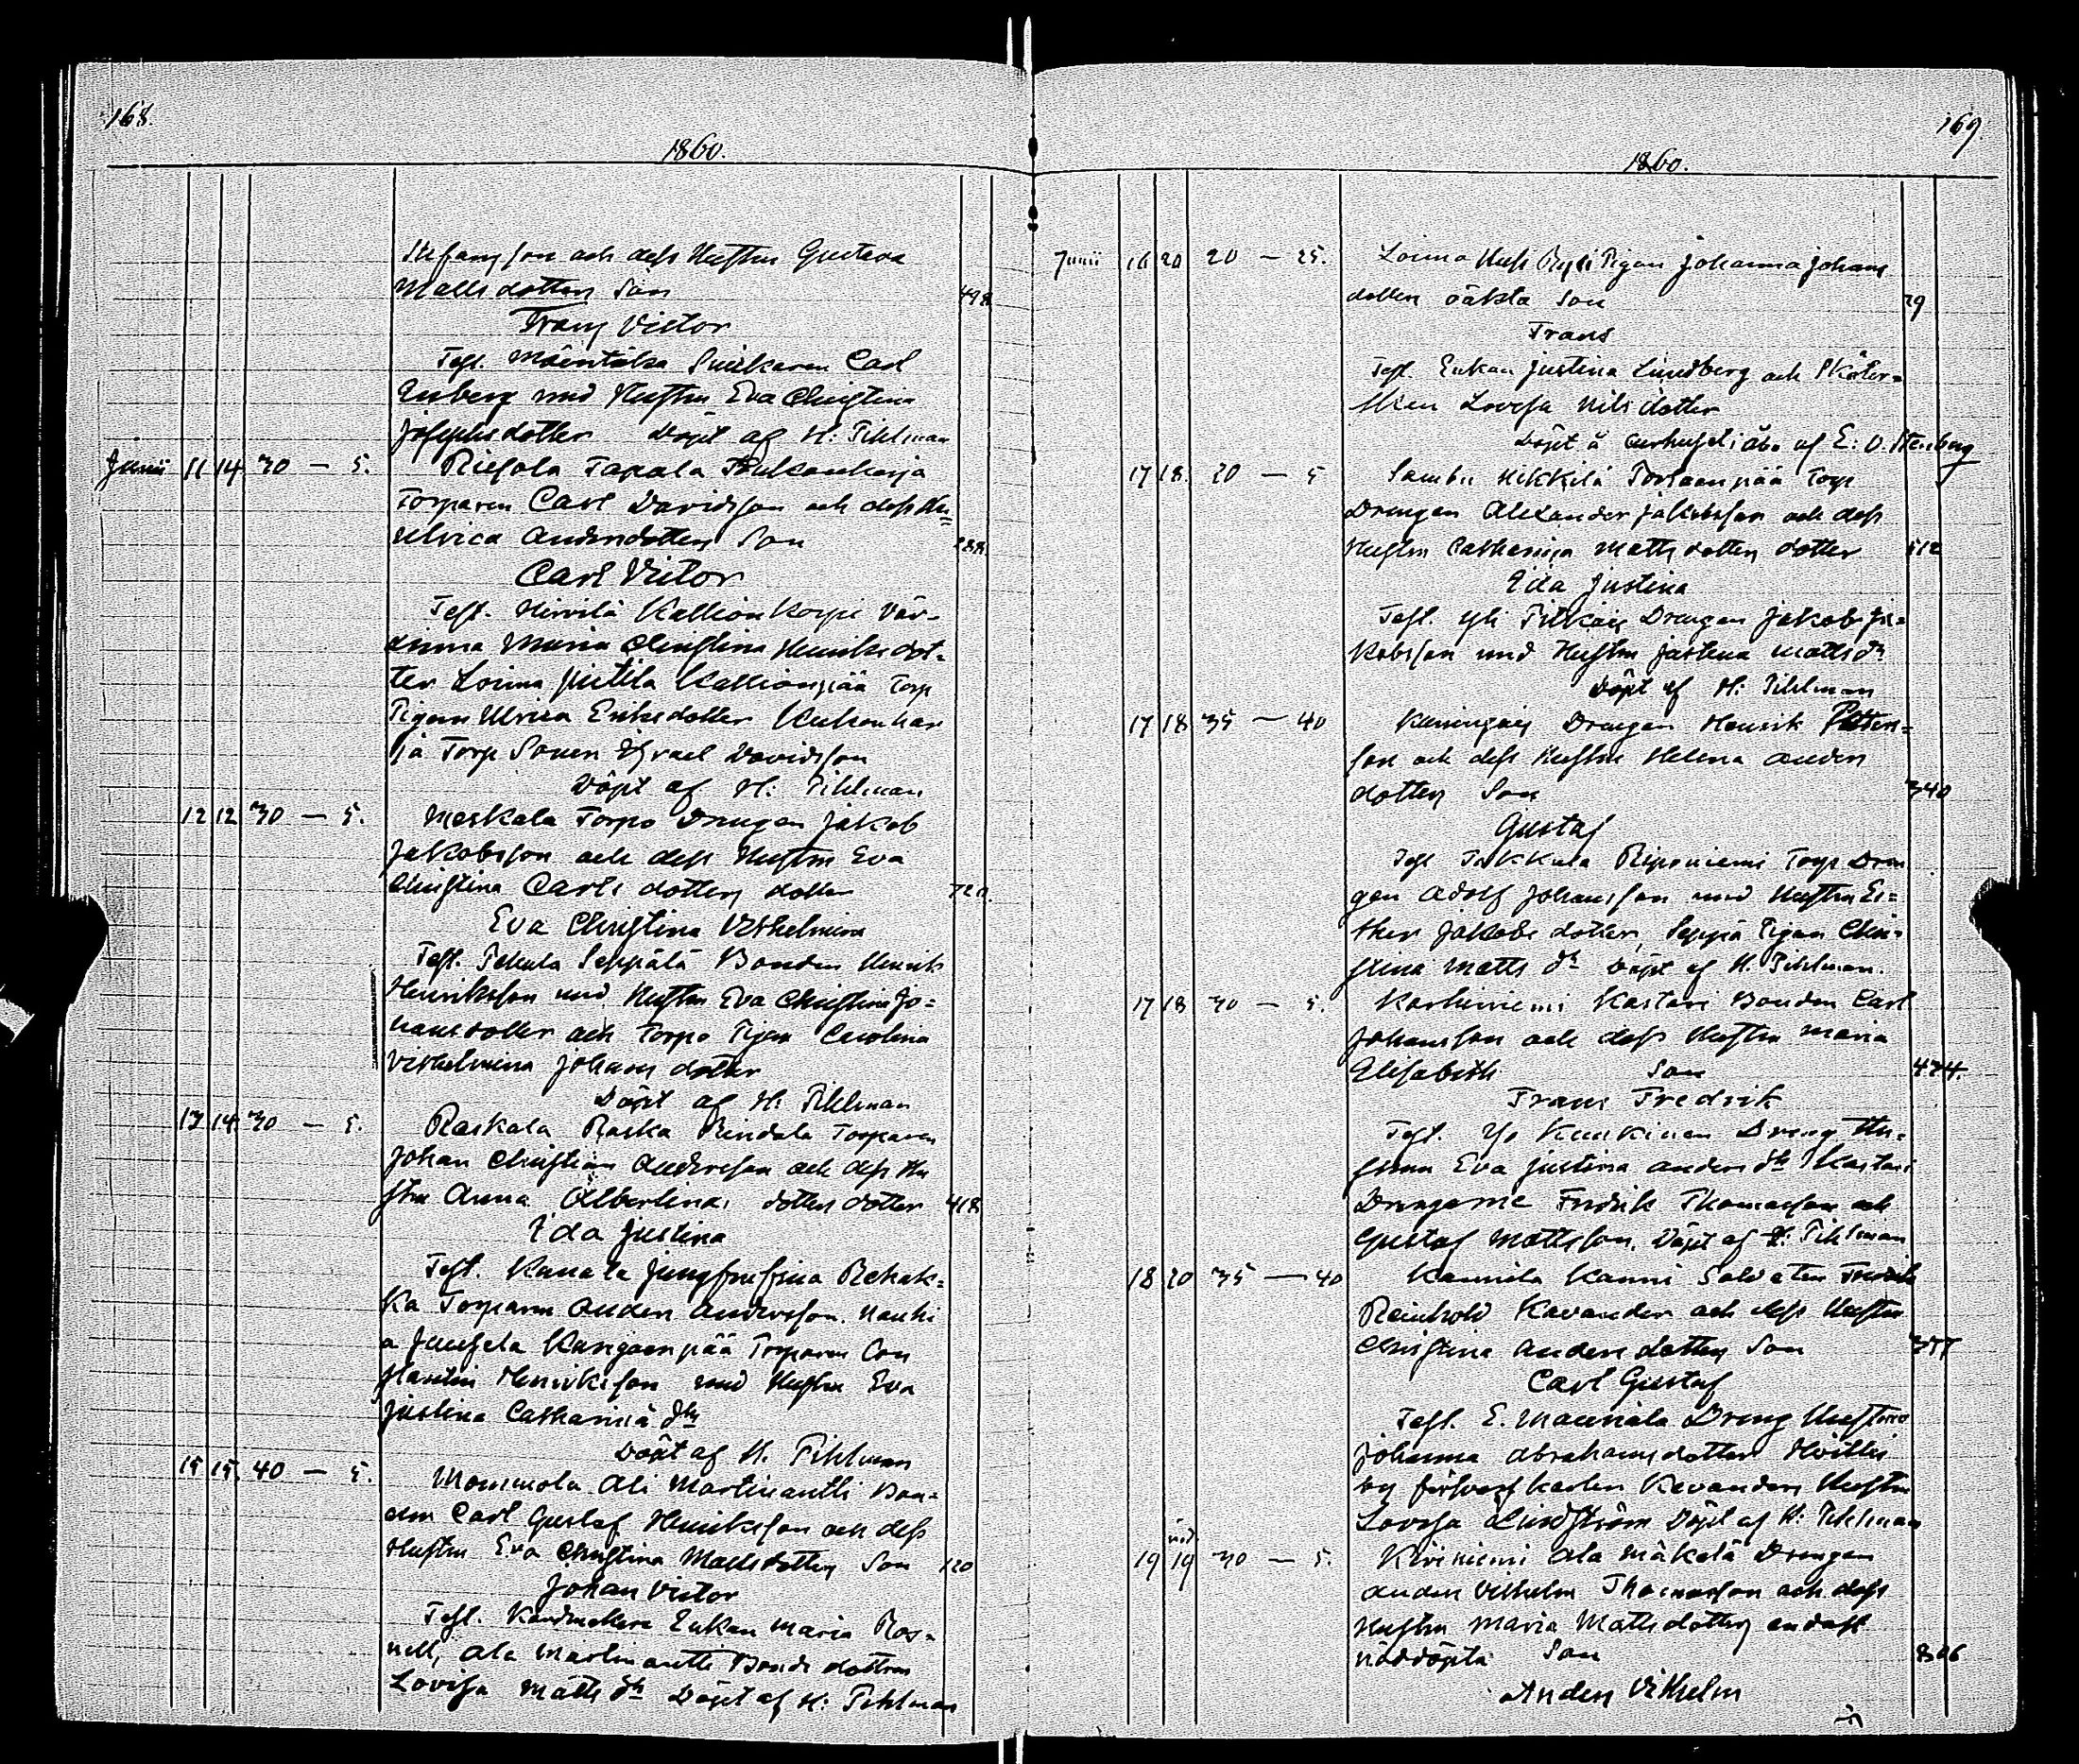 168.
1860.
Stefansson och dess Hustru Gustava
Matts dotters Son 498
Frans Victor
Test. Mäentaka Snickaren Carl
Enberg med Hustru Eva Christina
Josephsdotter Döpt af H: Pihlman
Junii 11 14 30 — 5. Riesola Tapala Kukonharja
Torparen Carl Davidsson och dess Hu
Ulrica Andersdotters Son
Carl Victor
Test. Hirvilä Kallionkorpi Vär-
dinna Maria Christina Henriksdot-
ter Loima Kallionpää Torp
Pigan Ulrica Eriksdotter Kukonhar
ja Torp Sonen Israel Davidsson
Döpt af H: Pihlman
12 12 30 — 5. Meskala Torpo Drengen Jakob
Jakobsson och dess Hustru Eva
Christina Carls dotters dotter 720.
Eva Christina Vilhelmina
Test. Seppälä Bonden Henrik
Henriksson med Hustru Eva Christina Jo-
hansdotter och Torpo Pigan Carolina
Vilhelmina Johans dotter
Döpt af H: Pihlman
13 14 30 — 5. Raskala Raska Rindala Torparen
Johan Christian Andersson och dess Hu
stru Anna Albertina dotters dotter 418
Ida Justina
Test. Kanala Jungfru Rehak-
ka Torparen Anders Andersson. Hauki
a Kangaanpää Torparen Con
stantin Henriksson med Hustru Eva
Justina Catharina dtr
Döpt af H. Pihlman
15 15 40 — 5. Mommola Ali Martinantti Bon-
den Carl Gustaf Henriksson och dess
Hustru Eva Christina Mattsdotters Son 120
Johan Victor
Test. Enkan Maria Ros-
nell, Ala Martinantti Bonde dottren
Lovisa Matts dtr Döpt af H: Pihlman
169
1860.
Junii 16 20 20 — 25. Loima Pigan Johanna Johans
dotters oäkta Son 29
Frans
Test. Enkan Justina Lundberg och Sköter-
skan Lovisa Nils dotter
Döpt å curhuset i Åbo af E: O. Stenberg
17 18. 20 — 5 Sambu Hikkilä Torp
Drengen Alexander Jakobsson och dess
Hustru Catharina Matts dotters dotter 512
Ida Justina
Test. Yli Pitkäis Drengen Jakob Ja-
kobsson med Hustru Justina Matts dr
Döpt af H: Pihlman
17 18 35 — 40 Drengen Henrik Petters-
son och dess Hustru Helena Anders
dotters Son 340
Gustaf
Test Torp Dren
gen Adolf Johansson med Hustru Es-
ther Jakobs dotter, Seppä Pigan Chri-
stina Matts dr Döpt af H. Pihlman.
17 18 30 — 5. Karhiniemi Kastari Bonden Carl
Johansson och dess Hustru Maria
Elisabeth Son 474.
Frans Fredrik
Test. Yso Kuukinen Dreng Hu-
strun Eva Justina Anders dtr Kastari
Drengarne Fredrik Thomasson och
Gustaf Mattsson. Döpt af H: Pihlman
18 20 35 — 40 Kannila Kanni Soldaten Fredrik
Reinhold Kavander och dess Hustru
Christina Anders dotters Son 377
Carl Gustaf
Test. E. Mauriala Dreng Hustrun
Johanna Abrahamsdotter Hvittis
by Kavanders Hustru
Lovisa Lindström Döpt af H: Pihlman
19 19 30 — 5. Kiviniemi Ala Mäkelä Drengen
Anders Vilhelm Thomasson och dess
Hustru Maria Mattsdotters endast
nöddöpta Son 806
Anders Vilhelm